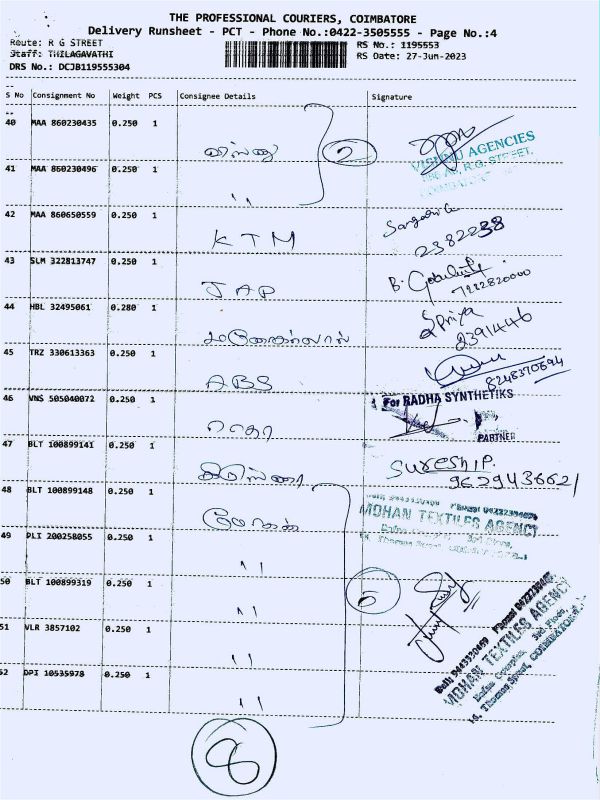 THE PROFESSIONAL COURIERS, COIMBATORE
Delivery Runsheet - PCT - Phone No.:0422-3505555 - Page No.:4
Route: R G STREET
RS No.: 1195553
Staff: THILAGAVATHI
RS Date: 27-Jun-2023
DRS No.: DCJB119555304
S No Consignment No Weight PCS Consignee Details Signature
40 MAA 860230435 0.250 1
2
VISHNU AGENCIES
R.G. STREET,
41 MAA 860230496 0.250 1 "
42 MAA 860650559 0.250 1 KTM
2382238
43 SLM 322813747 0.250 1 JAP B.
44 HBL 32495061 0.280 1 Priya
2391446
45 TRZ 330613363 0.250 1 ABS
8248370694
46 VNS 505040072 0.250 1 For RADHA SYNTHETIKS
PARTNER
47 BLT 100899141 0.250 1 SURESH P.
9629436621
48 BLT 100899148 0.250 1 மோகன்
MOHAN TEXTILES AGENCY
49 PLI 200258055 0.250 1 "
50 BLT 100899319 0.250 1 "
5
51 VLR 3857102 0.250 1 "
52 DPI 10535978 0.250 1 "
MOHAN TEXTILES AGENCY
8